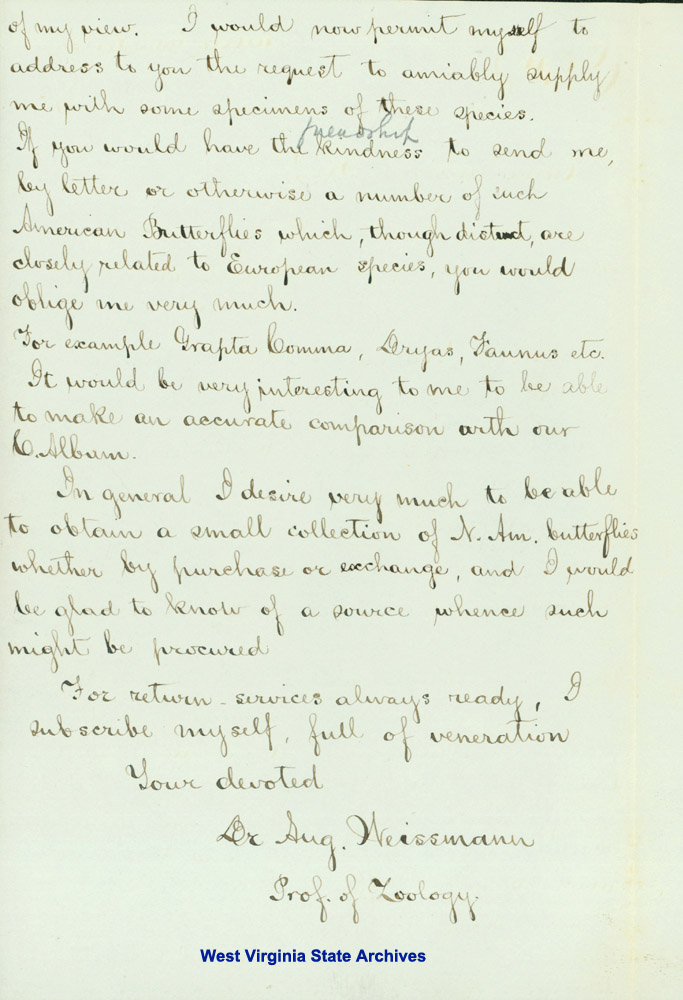 of my view. I would now permit myself to
address to you the request to amiably supply
me with some specimens of these species.
friendship
If you would have the kindness to send me,
by letter or otherwise a number of such
American Butterflies which, though distinct, are
closely related to European species, you would
oblige me very much.
For example Grapta Comma, Dryas, Faunus etc.
It would be very interesting to me to be able
to make an accurate comparison with our
C. Album.
In general I desire very much to be able
to obtain a small collection of N. Am. butterflies
whether by purchase or exchange, and I would
be glad to know of a source whence such
might be procured
For return-services always ready, I
subscribe myself, full of veneration
Your devoted
Dr Aug. Weissmann
Prof. of Zoology.
West Virginia State Archives